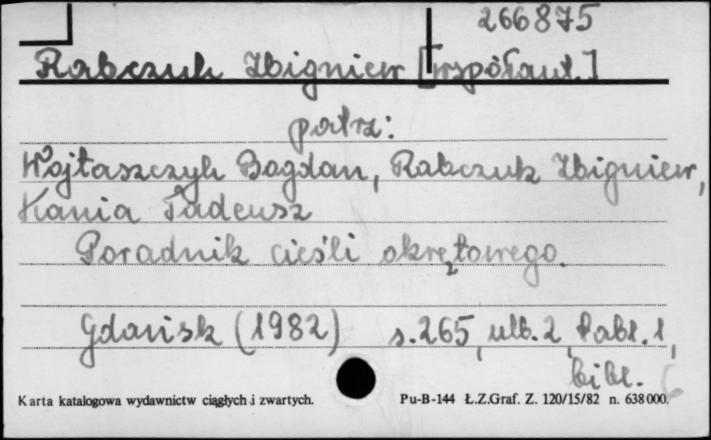 266875
Rabczuk Zbigniew [współaut.]
patrz:
Wojtaszczyk Bogdan, Rabczuk Zbigniew,
Kania Tadeusz
Poradnik cieśli okrętowego.
Gdańsk (1982) s. 265, ulb. 2, tabl. 1,
bibl.
Karta katalogowa wydawnictw ciągłych i zwartych. Pu-B-144 Ł.Z.Graf. Z. 120/15/82 n. 638000.